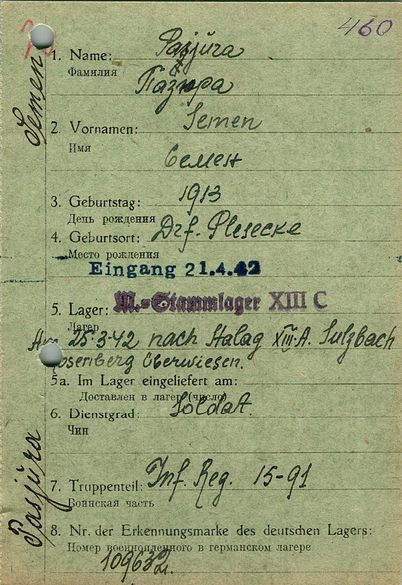 460
Semen
Pasjüra
1. Name: Pasjüra
Фамилия
Пазюра
2. Vornamen: Semen
Имя
Семен
3. Geburtstag: 1913
День рождения
4. Geburtsort: Drf. Plesecke
Место рождения
Eingang 21.4.42
5. Lager: M.-Stammlager XIII C
Лагер
Am 25.3.42 nach Stalag XIII A. Sulzbach
Rosenberg überwiesen.
5a. Im Lager eingeliefert am:
Доставлен в лагер (число)
6. Dienstgrad: Soldat.
Чин
7. Truppenteil: Inf. Reg. 15-91
Воинская часть
8. Nr. der Erkennungsmarke des deutschen Lagers:
Номер военнопленного в германском лагере